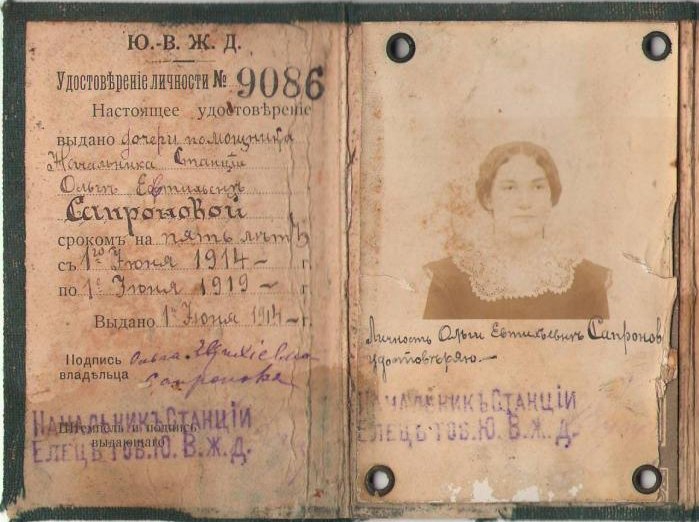 Ю.-В. Ж. Д.
Удостовѣреніе личности № 9086
Настоящее удостовѣреніе
выдано дочери помощника
Начальника Станціи
Ольгѣ
Сапроновой
срокомъ на пять лѣтъ
съ 1го Іюня 1914 г.
по 1е Іюня 1919 г.
Выдано 1го Іюня 1914 г.
Подпись
владѣльца
Сапронова
Штемпель и подпись
выдающаго
НАЧАЛЬНИКЪ СТАНЦІИ
ЕЛЕЦЪ ТОВ. Ю. В. Ж. Д.
Личность Ольги Сапронов
удостовѣряю.
НАЧАЛЬНИКЪ СТАНЦІИ
ЕЛЕЦЪ ТОВ. Ю. В. Ж. Д.